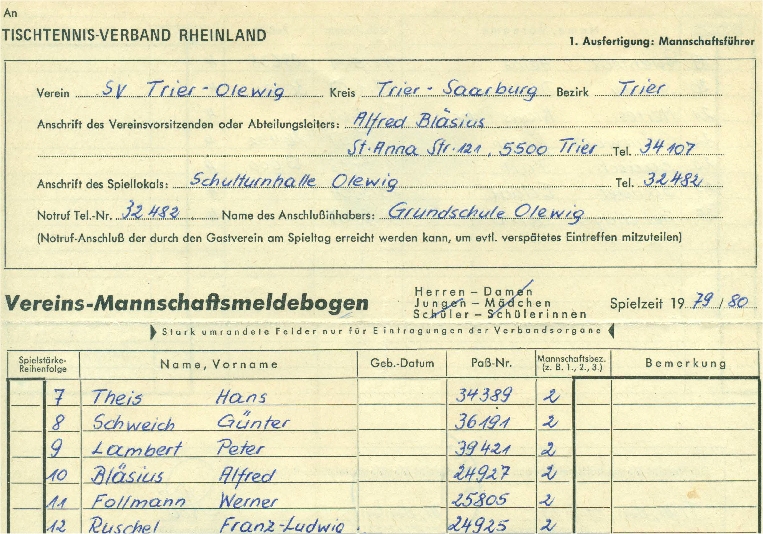 An
TISCHTENNIS-VERBAND RHEINLAND
1. Ausfertigung: Mannschaftsführer
Verein SV Trier-Olewig Kreis Trier-Saarburg Bezirk Trier
Anschrift des Vereinsvorsitzenden oder Abteilungsleiters: Alfred Bläsius
St. Anna Str. 121, 5500 Trier Tel. 34107
Anschrift des Spiellokals: Schulturnhalle Olewig Tel. 32482
Notruf Tel.-Nr. 32 482 Name des Anschlußinhabers: Grundschule Olewig
(Notruf-Anschluß der durch den Gastverein am Spieltag erreicht werden kann, um evtl. verspätetes Eintreffen mitzuteilen)
Vereins-Mannschaftsmeldebogen
Herren – Damen
Jungen – Mädchen
Schüler – Schülerinnen
Spielzeit 19 79 / 80
Stark umrandete Felder nur für Eintragungen der Verbandsorgane
Spielstärke-Reihenfolge Name, Vorname Geb.-Datum Paß-Nr. Mannschaftsbez. (z. B. 1., 2., 3.) Bemerkung
7 Theis Hans 34389 2
8 Schweich Günter 36191 2
9 Lambert Peter 39421 2
10 Bläsius Alfred 24927 2
11 Follmann Werner 25805 2
12 Ruschel Franz-Ludwig 24925 2